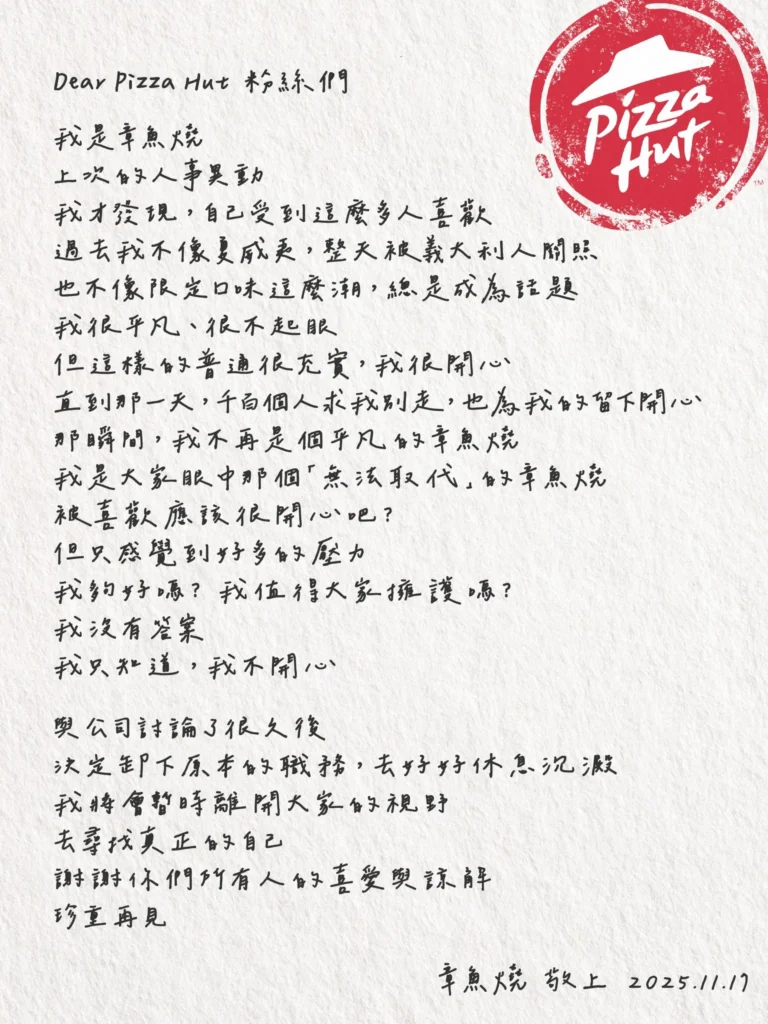 Pizza Hut
Dear Pizza Hut 粉絲們
我是章魚燒
上次的人事異動
我才發現，自己受到這麼多人喜歡
過去我不像夏威夷，整天被義大利人關照
也不像限定口味這麼潮，總是成為話題
我很平凡、很不起眼
但這樣的普通很充實，我很開心
直到那一天，千百個人求我別走，也為我的留下開心
那瞬間，我不再是個平凡的章魚燒
我是大家眼中那個「無法取代」的章魚燒
被喜歡應該很開心吧？
但只感覺到好多的壓力
我夠好嗎？我值得大家擁護嗎？
我沒有答案
我只知道，我不開心
與公司討論了很久後
決定卸下原本的職務，去好好休息沉澱
我將會暫時離開大家的視野
去尋找真正的自己
謝謝你們所有人的喜愛與諒解
珍重再見
章魚燒 敬上 2025.11.17